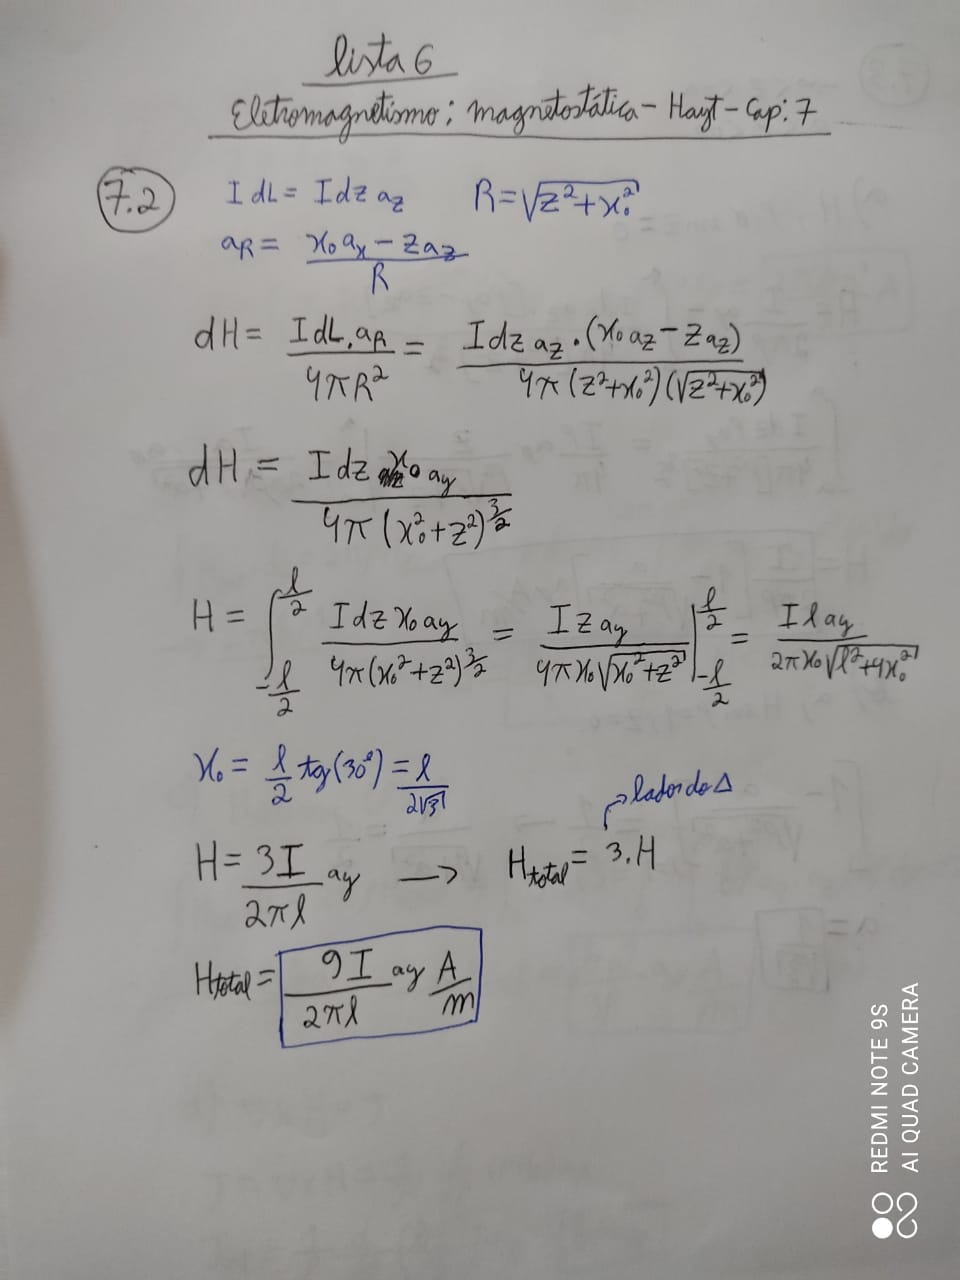 lista 6
Eletromagnetismo: magnetostática - Hayt - Cap: 7
7.2 I dL = I dz az R = √(z² + x₀²)
aR = (x₀ ax - z az) / R
dH = (I dL . aR) / (4πR²) = (I dz az • (x₀ az - z az)) / (4π (z² + x₀²)(√(z² + x₀²)))
dH = (I dz x₀ ay) / (4π (x₀² + z²)^(3/2))
H = ∫_{-l/2}^{l/2} (I dz x₀ ay) / (4π(x₀² + z²)^(3/2)) = (I z ay) / (4π x₀ √(x₀² + z²)) |_{-l/2}^{l/2} = (I l ay) / (2π x₀ √(l² + 4x₀²))
x₀ = l/2 tg(30°) = l / (2√3)
→ lados do Δ
H = 3I / (2πl) ay → Htotal = 3.H
Htotal = 9I / (2πl) ay A/m
REDMI NOTE 9S
AI QUAD CAMERA